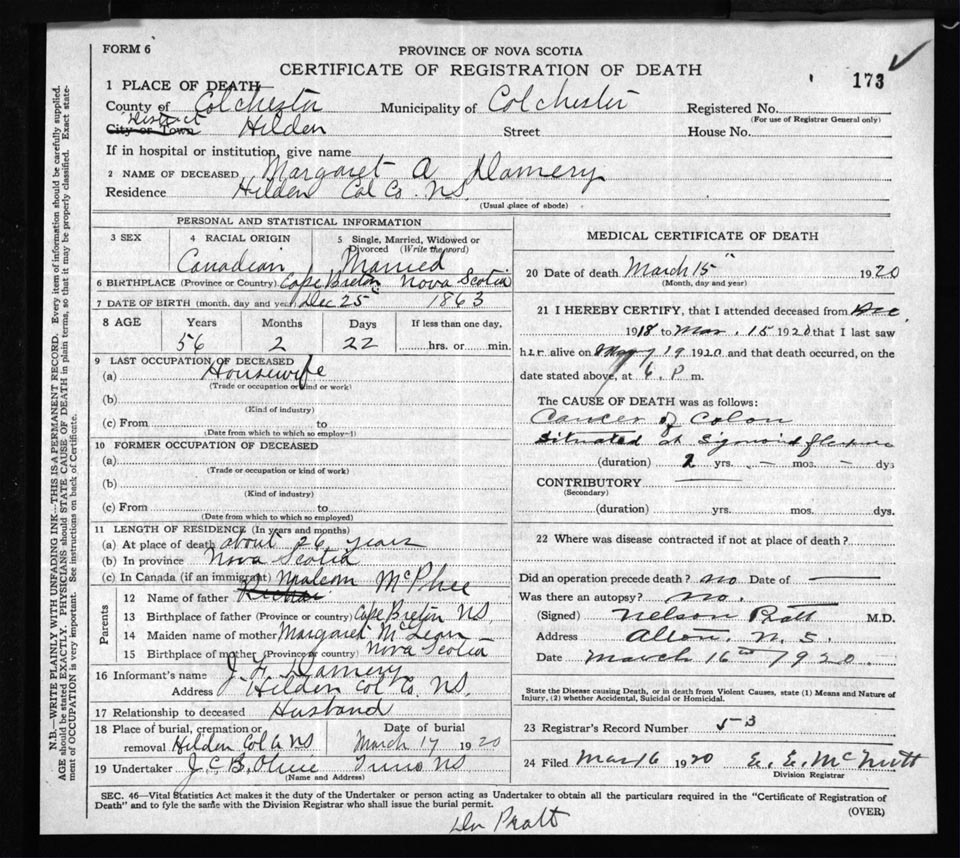 FORM 6
PROVINCE OF NOVA SCOTIA
CERTIFICATE OF REGISTRATION OF DEATH
173
1 PLACE OF DEATH
County of Colchester Municipality of Colchester Registered No.
(For use of Registrar General only)
District
City or Town Hilden Street House No.
If in hospital or institution, give name
2 NAME OF DECEASED Margaret A Damery
Residence Hilden Col Co. N.S.
(Usual place of abode)
PERSONAL AND STATISTICAL INFORMATION
3 SEX 4 RACIAL ORIGIN 5 Single, Married, Widowed or Divorced (Write the word)
Canadian Married
6 BIRTHPLACE (Province or Country) Cape Breton Nova Scotia
7 DATE OF BIRTH (month, day and year) Dec 25 1863
8 AGE Years Months Days If less than one day,
56 2 22 hrs. or min.
9 LAST OCCUPATION OF DECEASED
(a) Housewife
(Trade or occupation or kind of work)
(b)
(Kind of industry)
(c) From to
(Date from which to which so employ-)
10 FORMER OCCUPATION OF DECEASED
(a)
(Trade or occupation or kind of work)
(b)
(Kind of industry)
(c) From to
(Date from which to which so employed)
11 LENGTH OF RESIDENCE (In years and months)
(a) At place of death about 26 years
(b) In province Nova Scotia
(c) In Canada (if an immigrant)
Parents
12 Name of father Malcom McPhee
13 Birthplace of father (Province or country) Cape Breton NS
14 Maiden name of mother Margaret McLean
15 Birthplace of mother (Province or country) Nova Scotia
16 Informant's name J. H. Damery
Address Hilden Col Co. N.S.
17 Relationship to deceased Husband
18 Place of burial, cremation or removal Hilden Col Co NS
Date of burial
March 17 1920
19 Undertaker J.C.B. Olive Truro NS
(Name and Address)
MEDICAL CERTIFICATE OF DEATH
20 Date of death March 15 1920
(Month, day and year)
21 I HEREBY CERTIFY, that I attended deceased from Dec.
1918 to Mar. 15 1920 that I last saw
her alive on 19 1920 and that death occurred, on the
date stated above, at 6. P m.
The CAUSE OF DEATH was as follows:
Cancer of Colon
Situated at Sigmoid flexure
(duration) 2 yrs. – mos. – dys
CONTRIBUTORY
(Secondary)
(duration) yrs. mos. dys.
22 Where was disease contracted if not at place of death?
Did an operation precede death? no Date of —
Was there an autopsy? no.
(Signed) Nelson Pratt M.D.
Address N. S.
Date March 16th 1920.
State the Disease causing Death, or in death from Violent Causes, state (1) Means and Nature of
Injury, (2) whether Accidental, Suicidal or Homicidal.
23 Registrar's Record Number 53
24 Filed Mar 16 1920 E. E. McNutt
Division Registrar
SEC. 46—Vital Statistics Act makes it the duty of the Undertaker or person acting as Undertaker to obtain all the particulars required in the "Certificate of Registration of
Death" and to fyle the same with the Division Registrar who shall issue the burial permit.
(OVER)
Dr Pratt
N.B.—WRITE PLAINLY WITH UNFADING INK—THIS IS A PERMANENT RECORD. Every item of information should be carefully supplied.
AGE should be stated EXACTLY. PHYSICIANS should STATE CAUSE OF DEATH in plain terms, so that it may be properly classified. Exact state-
ment of OCCUPATION is very important. See instructions on back of Certificate.